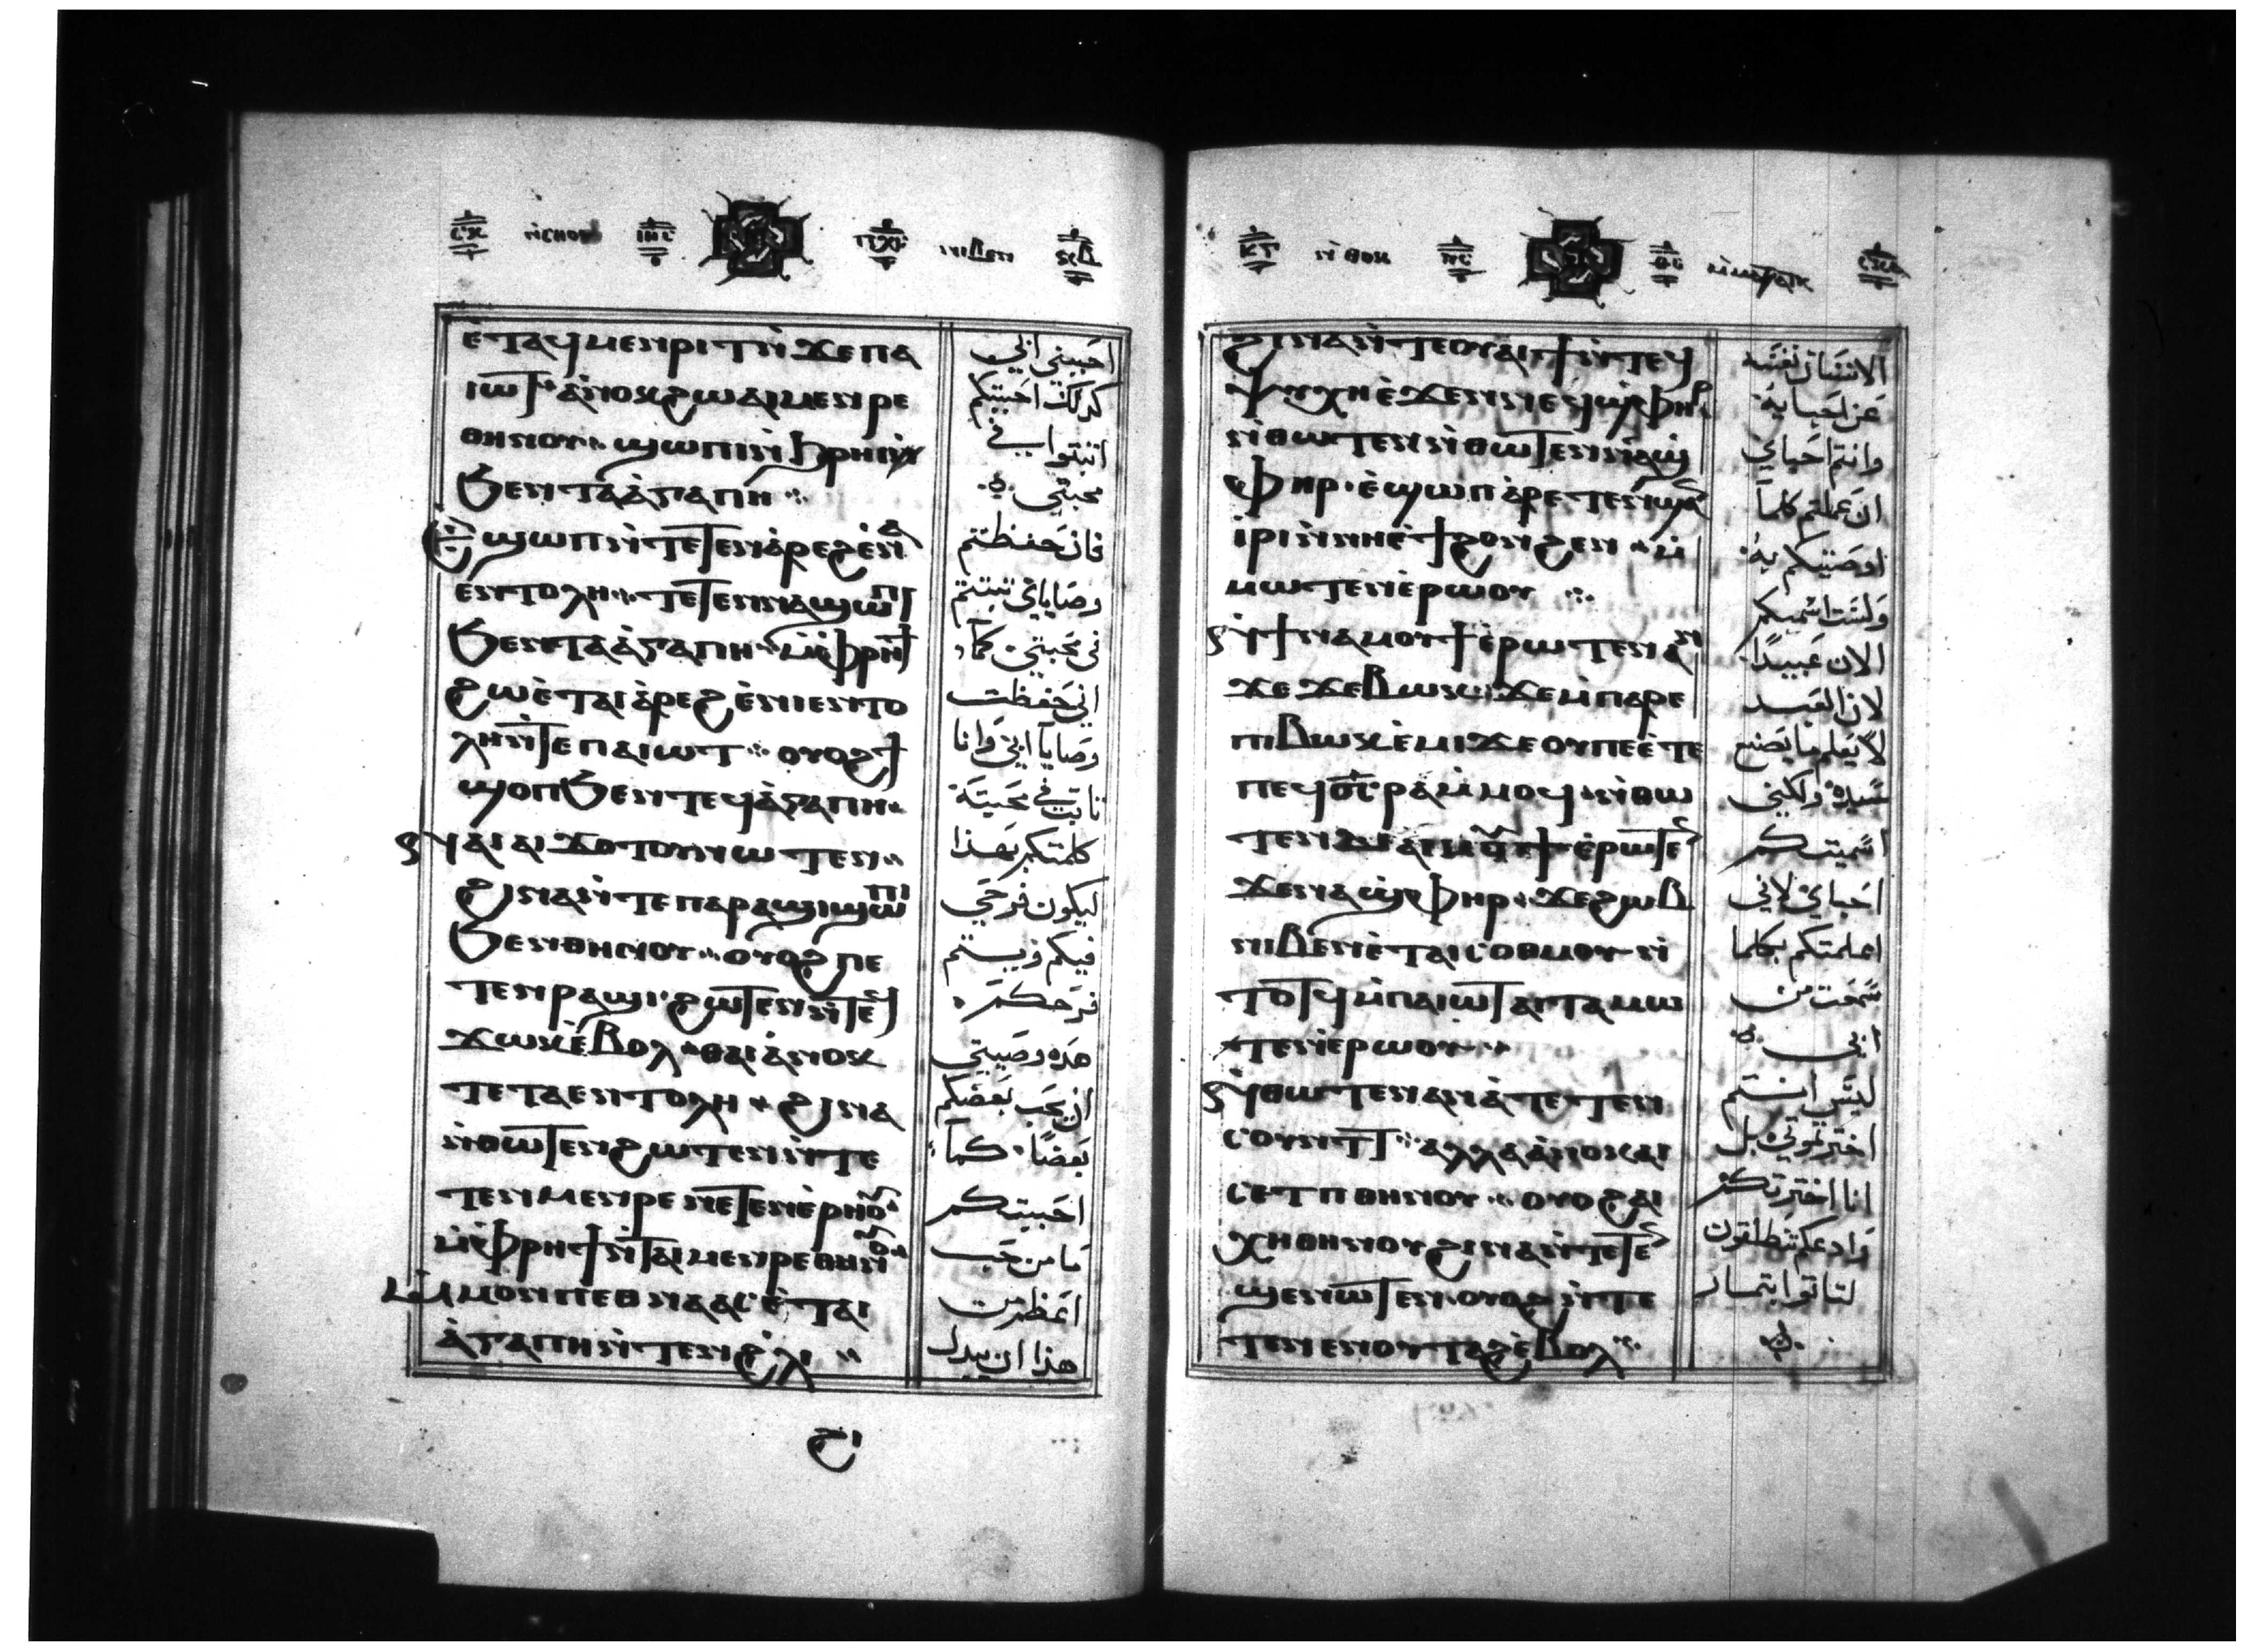 ⲓⲏⲥ ⲡⲭⲥ
ⲉ̀ⲧⲁϥⲙⲉⲛⲣⲓⲧⲛ̀ϫⲉⲡⲁ
ⲓⲱⲧ ⲁ̀ⲛⲟⲕϩⲱⲁⲓⲙⲉⲛⲣⲉ
ⲑⲏⲛⲟⲩ ϣⲱⲡⲓⲛ̀ϩ̀ⲣⲏⲓ
ϧⲉⲛⲧⲁⲁ̀ⲅⲁⲡⲏ
ⲉ̀ϣⲱⲡⲛ̀ⲧⲉⲧⲉⲛⲁ̀ⲣⲉϩⲉ̀ⲛⲁ
ⲉⲛⲧⲟⲗⲏ ⲧⲉⲧⲉⲛⲛⲁϣⲱⲡⲓ
ϧⲉⲛⲧⲁⲁ̀ⲅⲁⲡⲏ ⲙ̀ⲫⲣⲏϯ
ϩⲱⲉ̀ⲧⲁⲓⲁ̀ⲣⲉϩⲉ̀ⲛⲓⲉⲛⲧⲟ
ⲗⲏⲛ̀ⲧⲉⲡⲁⲓⲱⲧ ⲟⲩⲟϩϯ
ϣⲟⲡϧⲉⲛⲧⲉϥⲁ̀ⲅⲁⲡⲏ
ⲛⲁⲓⲁⲓϫⲟⲧⲟⲩⲛⲱⲧⲉⲛ
ϩⲓⲛⲁⲛ̀ⲧⲉⲡⲁⲣⲁϣⲓϣⲱⲡⲓ
ϧⲉⲛⲑⲏⲛⲟⲩ ⲟⲩⲟϩⲡⲉ
ⲧⲉⲛⲣⲁϣⲓ ϩⲱⲧⲉⲛⲛ̀ⲧⲉϥ
ϫⲱⲕⲉ̀ⲃⲟⲗ ⲑⲁⲓⲁ̀ⲛⲟⲕ
ⲧⲉⲧⲁⲉⲛⲧⲟⲗⲏ ϩⲓⲛⲁ
ⲛ̀ⲑⲱⲧⲉⲛϩⲱⲧⲉⲛⲛ̀ⲧⲉ
ⲧⲉⲛⲙⲉⲛⲣⲉⲛⲉⲧⲉⲛⲉⲣⲏⲟⲩ
ⲙ̀ⲫⲣⲏϯⲛ̀ⲧⲁⲓⲙⲉⲛⲣⲉⲑⲏⲛⲟⲩ
ⲙ̀ⲙⲟⲛⲡⲉⲑⲛⲁⲁⲥⲉ̀ⲧⲁⲓ
ⲁ̀ⲅⲁⲡⲏⲛ̀ⲧⲉⲛϩ̀ⲗⲓ
احبني ابي
كذلك احببتكم
اثبتوا في
محبتي
فان حفظتم
وصاياي تثبتم
في محبتي كما
اني حفظت
وصايا ابي وانا
ثابت في محبته
كلمتكم بهذا
ليكون فرحي
فيكم ويتم
فرحكم
هذه وصيتي
ان يحب بعضكم
بعضا كما
احببتكم
ما من حب
اعظم من
هذا ان يبدل
ϩⲓⲛⲁⲛ̀ⲧⲉⲟⲩⲁⲓϯⲛ̀ⲧⲉϥ
ⲯⲩⲭⲏⲉ̀ϫⲉⲛⲛⲉϥϣ̀ⲫⲏⲣ
ⲛ̀ⲑⲱⲧⲉⲛⲛ̀ⲑⲱⲧⲉⲛⲛⲁϣ̀
ⲫⲏⲣ ⲉ̀ϣⲱⲡⲁⲣⲉⲧⲉⲛϣⲁⲛ
ⲓⲣⲓⲛ̀ⲛⲏⲉ̀ϯϩⲟⲛϩⲉⲛ ⲙ̀
ⲙⲱⲧⲉⲛⲉ̀ⲣⲱⲟⲩ
ⲛ̀ϯⲛⲁⲙⲟⲩϯⲉ̀ⲣⲱⲧⲉⲛⲁⲛ
ϫⲉ ϫⲉⲃⲱⲕ ϫⲉⲙ̀ⲡⲁⲣⲉ
ⲡⲓⲃⲱⲕⲉ̀ⲙⲓϫⲉⲟⲩⲡⲉⲉ̀ⲧⲉ
ⲡⲉϥϭⲥ̅ⲣⲁⲙ̀ⲙⲟϥ ⲛ̀ⲑⲱ
ⲧⲉⲛⲇⲉⲁⲓⲙⲟⲩϯⲉ̀ⲣⲱⲧⲉⲛ
ϫⲉⲛⲁϣ̀ⲫⲏⲣ ϫⲉϩⲱⲃ
ⲛⲓⲃⲉⲛⲉ̀ⲧⲁⲓⲥⲟⲑⲙⲟⲩ ⲛ̀
ⲧⲟⲧϥⲙ̀ⲡⲁⲓⲱⲧⲁⲓⲧⲁⲙⲱ
ⲧⲉⲛⲉ̀ⲣⲱⲟⲩ
ⲛ̀ⲑⲱⲧⲉⲛⲁⲛⲁ̀ⲧⲉⲧⲉⲛ
ⲥⲟⲩⲛⲧⲧ ⲁⲗⲗⲁⲁ̀ⲛⲟⲕⲁⲓ
ⲥⲉⲧⲡⲑⲏⲛⲟⲩ ⲟⲩⲟϩⲁⲓ
ⲭⲏⲑⲏⲛⲟⲩϩⲓⲛⲁⲛ̀ⲧⲉⲧⲉⲛ
ϣⲉⲛⲱⲧⲉⲛ ⲟⲩⲟϩⲛ̀ⲧⲉ
ⲧⲉⲛⲉⲛⲟⲩⲧⲁϩⲉ̀ⲃⲟⲗ
الانسان نفسه
عن احبايه
وانتم احباي
ان عملتم كلما
اوصيتكم به
ولست اسميكم
الان عبيدا
لان العبد
لا يعلم ما يصنع
سيده ولكني
اسميتكم
احباي لاني
اعلمتكم بكلما
سمعت من
ابي
ليس انتم
اخترتموني بل
انا اخترتكم
وادعكم تنطلقون
لتاتوا بثمار